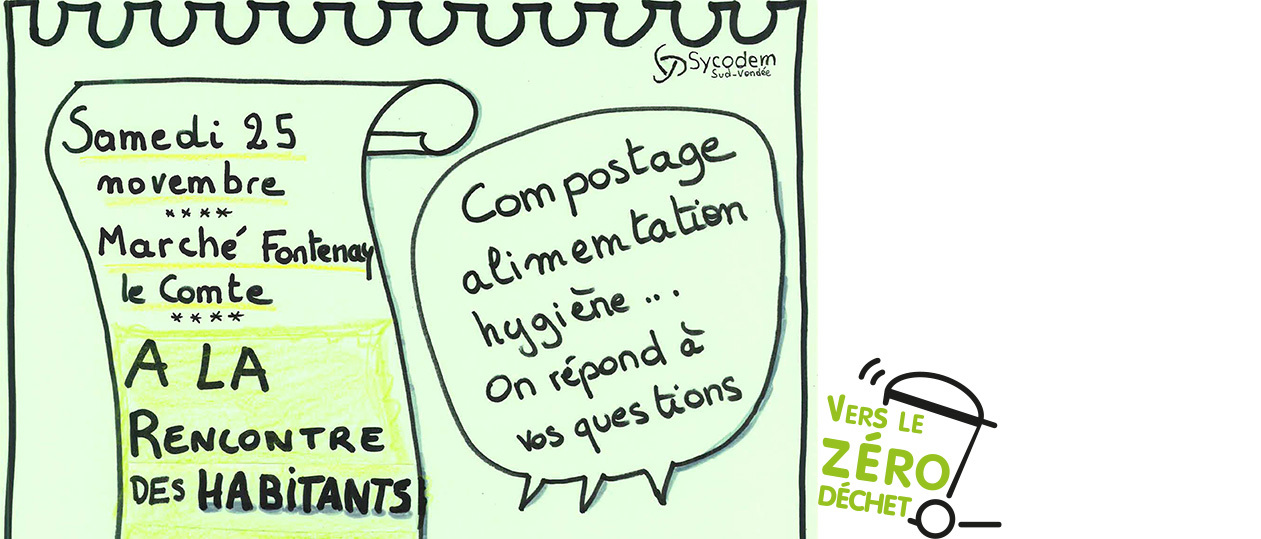 Sycodem
Sud-Vendée
Samedi 25
novembre
****
Marché Fontenay
le Comte
****
A LA
RENCONTRE
DES HABiTANTS
Compostage
alimentation
hygiène...
On répond à
vos questions
VERS LE
ZÉRO
DÉCHET